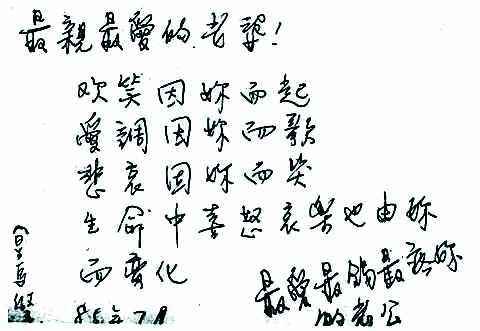 最親最愛的老婆！
欢笑因妳而起
愛調因妳而歌
悲哀因妳而哭
生命中喜怒哀樂也由妳
而變化
最愛最
的老公
85年7月